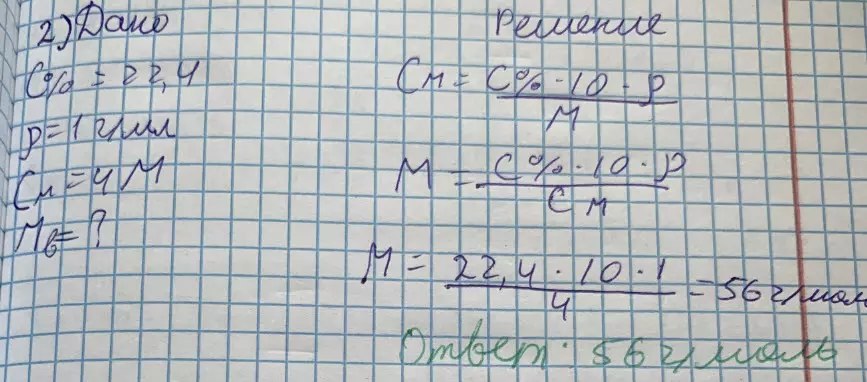 2) Дано
C% = 22,4
ρ = 1 г/мл
Cм = 4 М
Мв = ?
Решение
Cм = C% · 10 · ρ / М
М = C% · 10 · ρ / Cм
М = 22,4 · 10 · 1 / 4 = 56 г/мол
Ответ: 56 г/моль